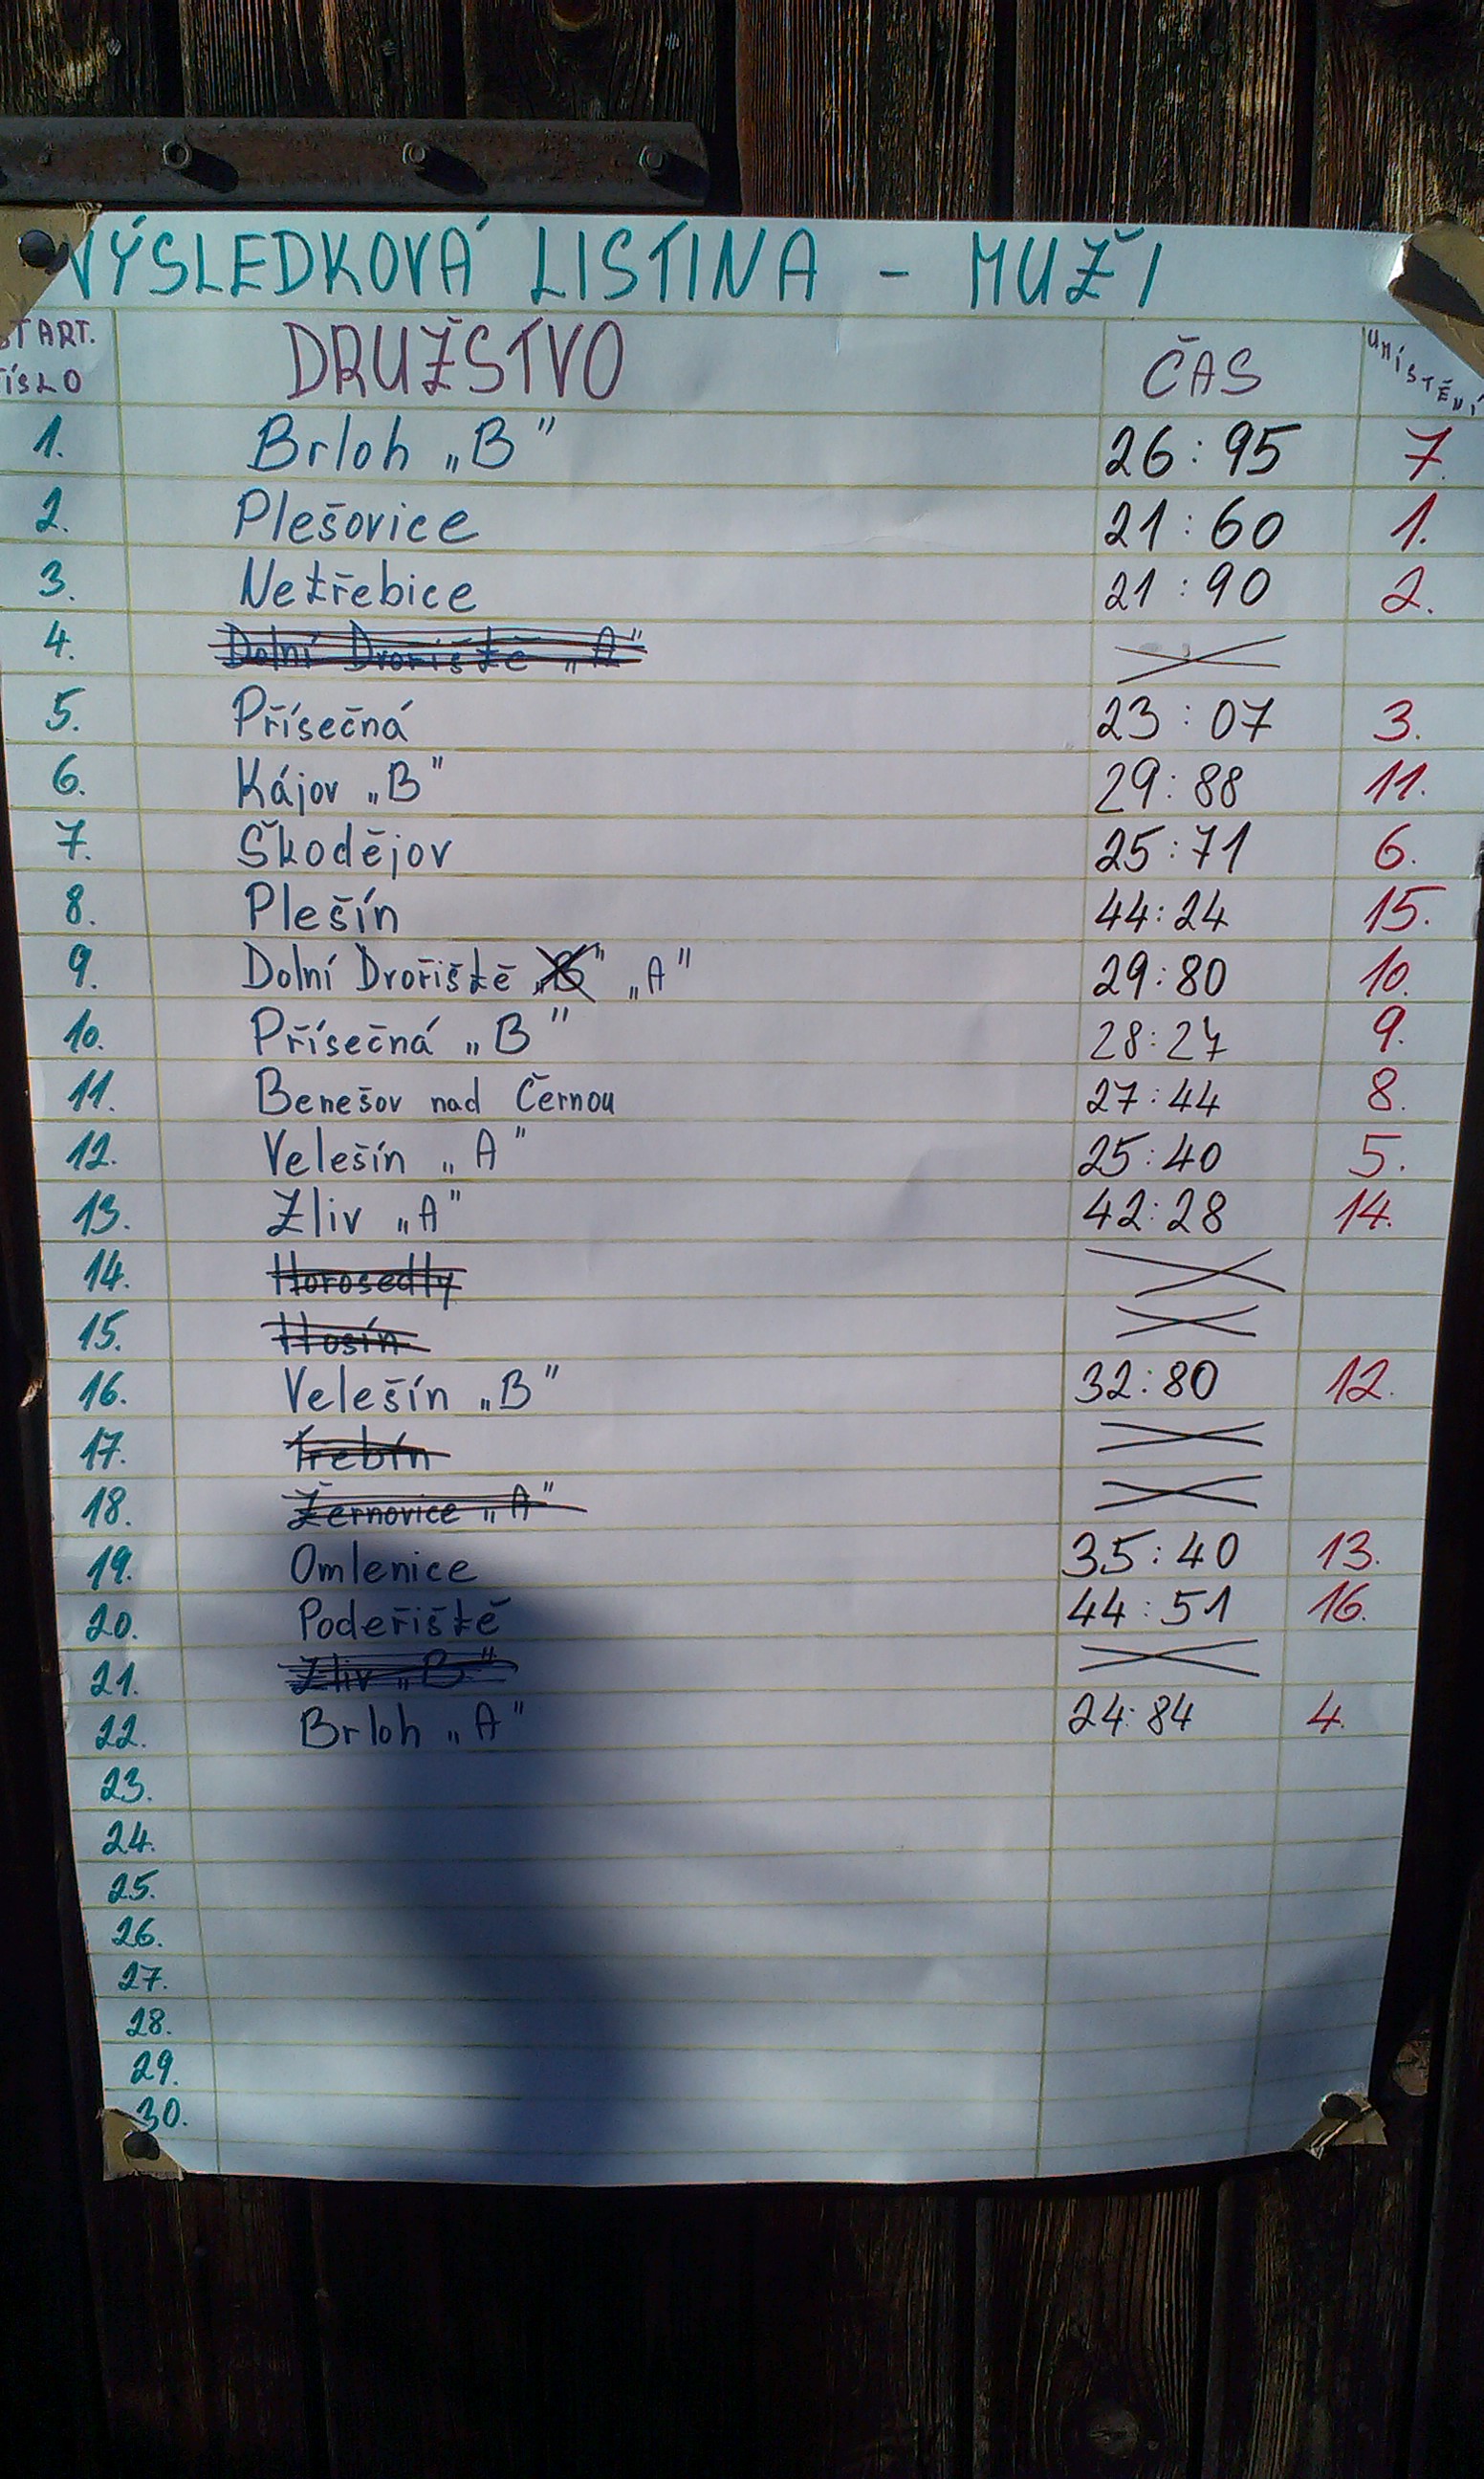 VÝSLEDKOVÁ LISTINA - MUŽI
START. ČÍSLO DRUŽSTVO ČAS UMÍSTĚNÍ
1. Brloh „B" 26:95 7.
2. Plešovice 21:60 1.
3. Netřebice 21:90 2.
4. Dolní Dvořiště „A"
5. Přísečná 23:07 3.
6. Kájov „B" 29:88 11.
7. Škodějov 25:71 6.
8. Plešín 44:24 15.
9. Dolní Dvořiště „B" „A" 29:80 10.
10. Přísečná „B" 28:27 9.
11. Benešov nad Černou 27:44 8.
12. Velešín „A" 25:40 5.
13. Zliv „A" 42:28 14.
14. Horosedly
15. Hosín
16. Velešín „B" 32:80 12.
17. Třebín
18. Žernovice „A"
19. Omlenice 35:40 13.
20. Podeřiště 44:51 16.
21. Zliv „B"
22. Brloh „A" 24:84 4.
23.
24.
25.
26.
27.
28.
29.
30.